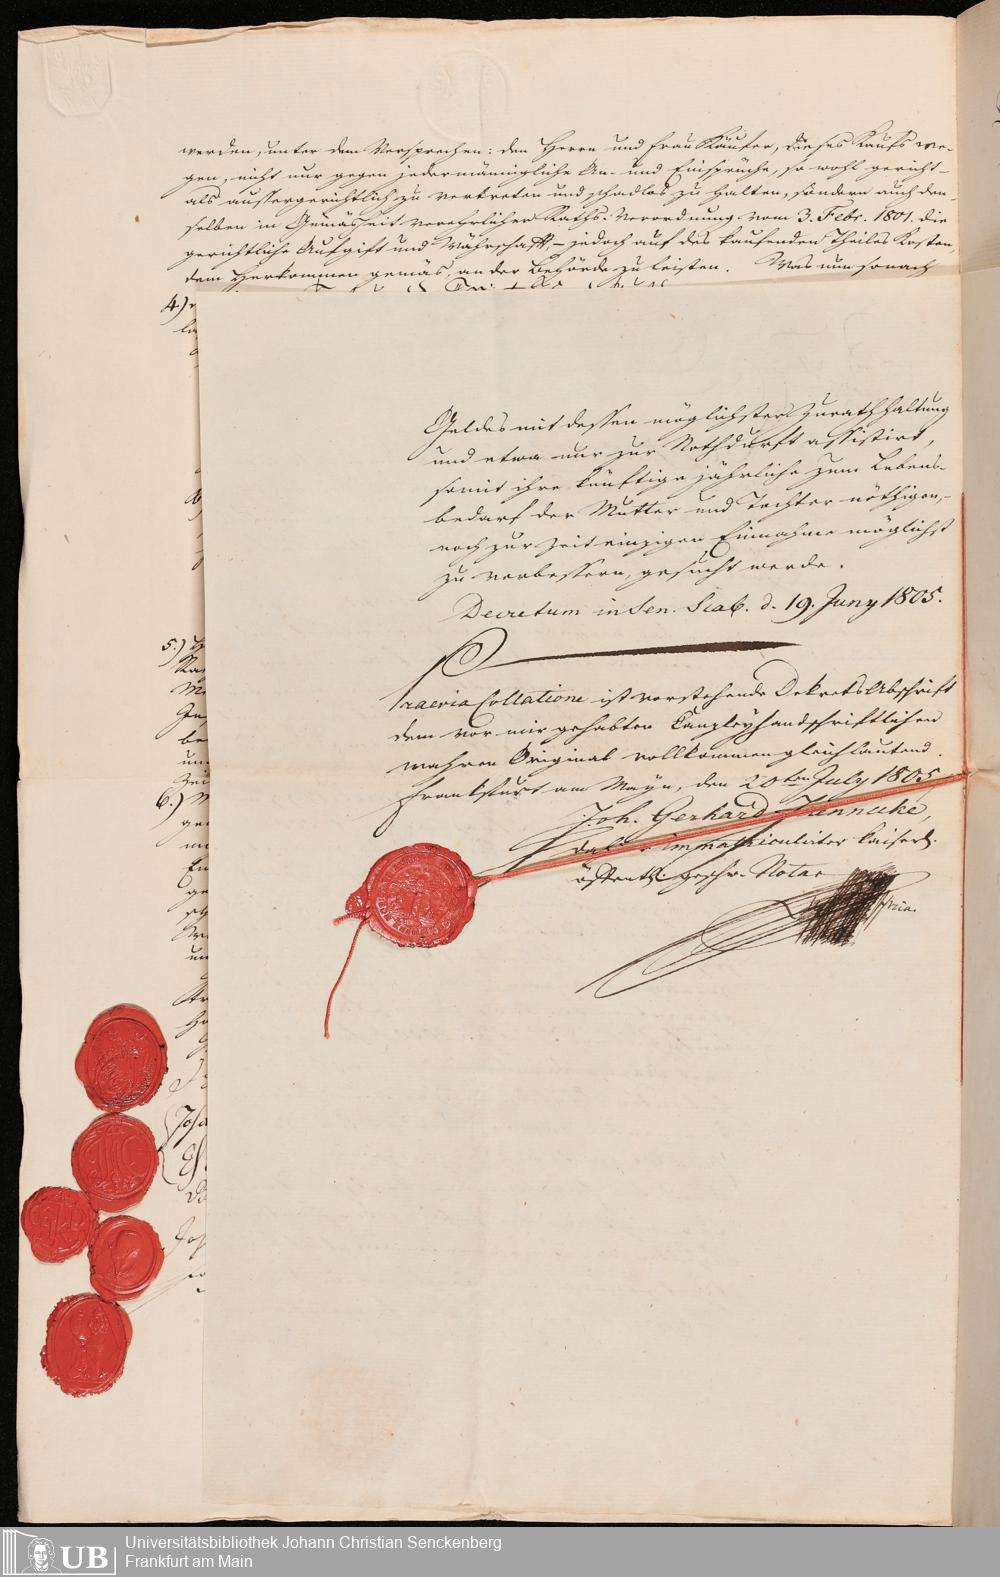 werden, unter dem Versprechen: den Herrn und Frau Käufer, dieses Kaufs we-
gen, nicht nur gegen jedermänniglichs An- und Einsprüche, so wohl gericht-
als aussergerichtlich zu vertreten und schadlos zu halten, sondern auch den-
selben in Gemäsheit verehrlicher Raths-Verordnung vom 3. Febr. 1801. die
gerichtliche Aufgift und Währschafft, - jedoch auf des kaufenden Theiles Kosten,
dem Herkommen gemäs, an der Behörde zu leisten. Was nun sonach
4.)
5.)
6.)
Geldes mit dessen möglichster Zurathhaltung
und etwa nur zur Nothdurft assistirt,
somit ihre künftige jährliche zum Lebens-
bedarf der Mutter und Tochter nöthigen,-
noch zur Zeit einzigen Einnahme möglichst
zu verbessern, gesucht werde.
Decretum in Sen. Scab. d. 19. Juny 1805.
Praevia Collatione ist vorstehende Dekrets Abschrift
dem vor mir gehabten kanzleyhandschriftlichen
wahren Original vollkommen gleichlautend.
Frankfurt am Mayn, den 20ten July 1805
Joh. Gerhard
immatriculirter kaiserl.
öffentl. geschw. Notar
Universitätsbibliothek Johann Christian Senckenberg
UB Frankfurt am Main